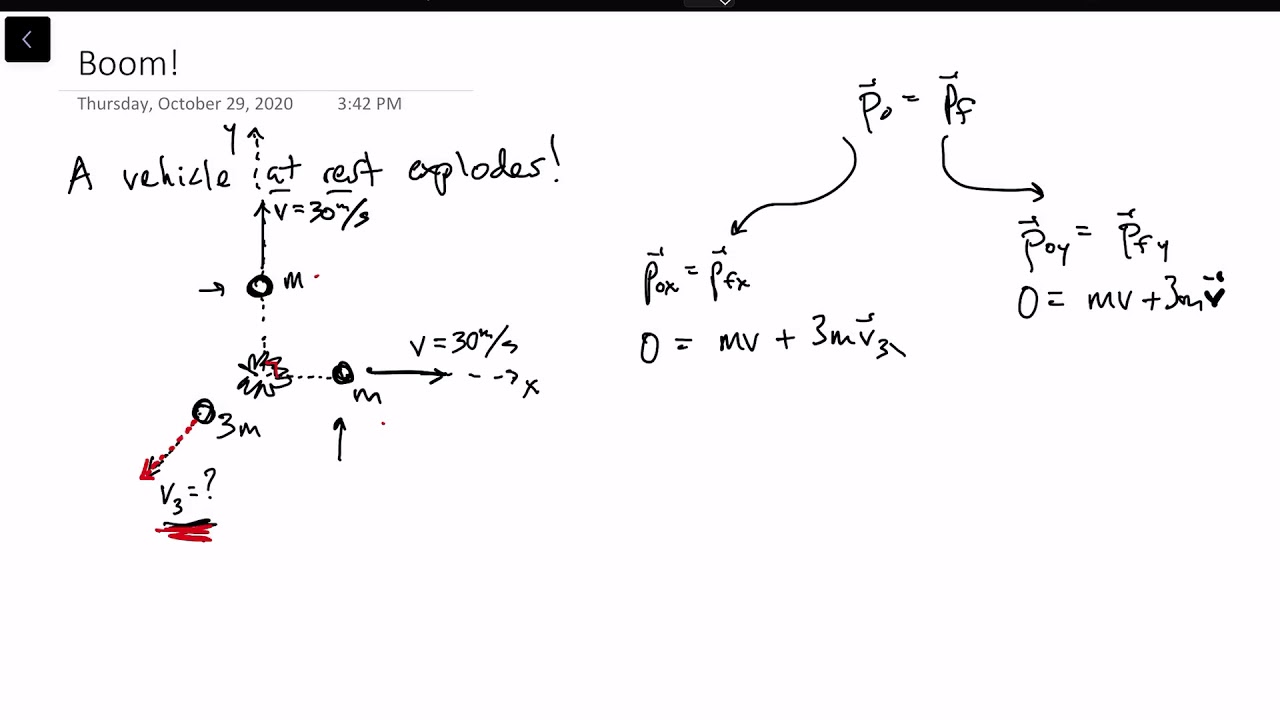 Boom!
Thursday, October 29, 2020 3:42 PM
y
A vehicle at rest explodes!
V = 30 m/s
m
V = 30 m/s
x
m
3m
V₃ = ?
p⃗₀ = p⃗f
p⃗₀ₓ = p⃗fₓ
0 = mv + 3mv⃗₃ₓ
p⃗₀y = p⃗fy
0 = mv + 3mv⃗